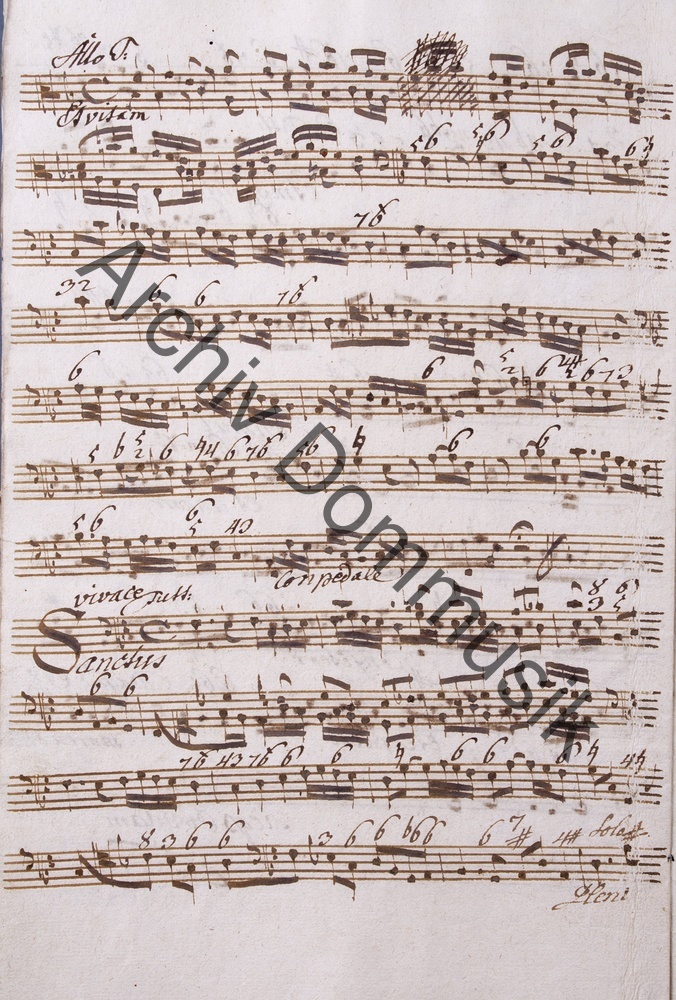 Allo T:
Et vitam
56 56 56 6♮
76
32 6 6 76
6 6 5/2 6 6 73
5 ♭ 5/2 6 76 56 ♮ 6 6
56 6/5 43
Con pedale
vivace Tutt:
8/3 6/5
Sanctus
6 6
76 43 76 6 6 6 6 6 4♮
8 3 6 6 3 6 6 ♭66 6 7/♯ 4♯ Sola
Pleni
Archiv Dommusik